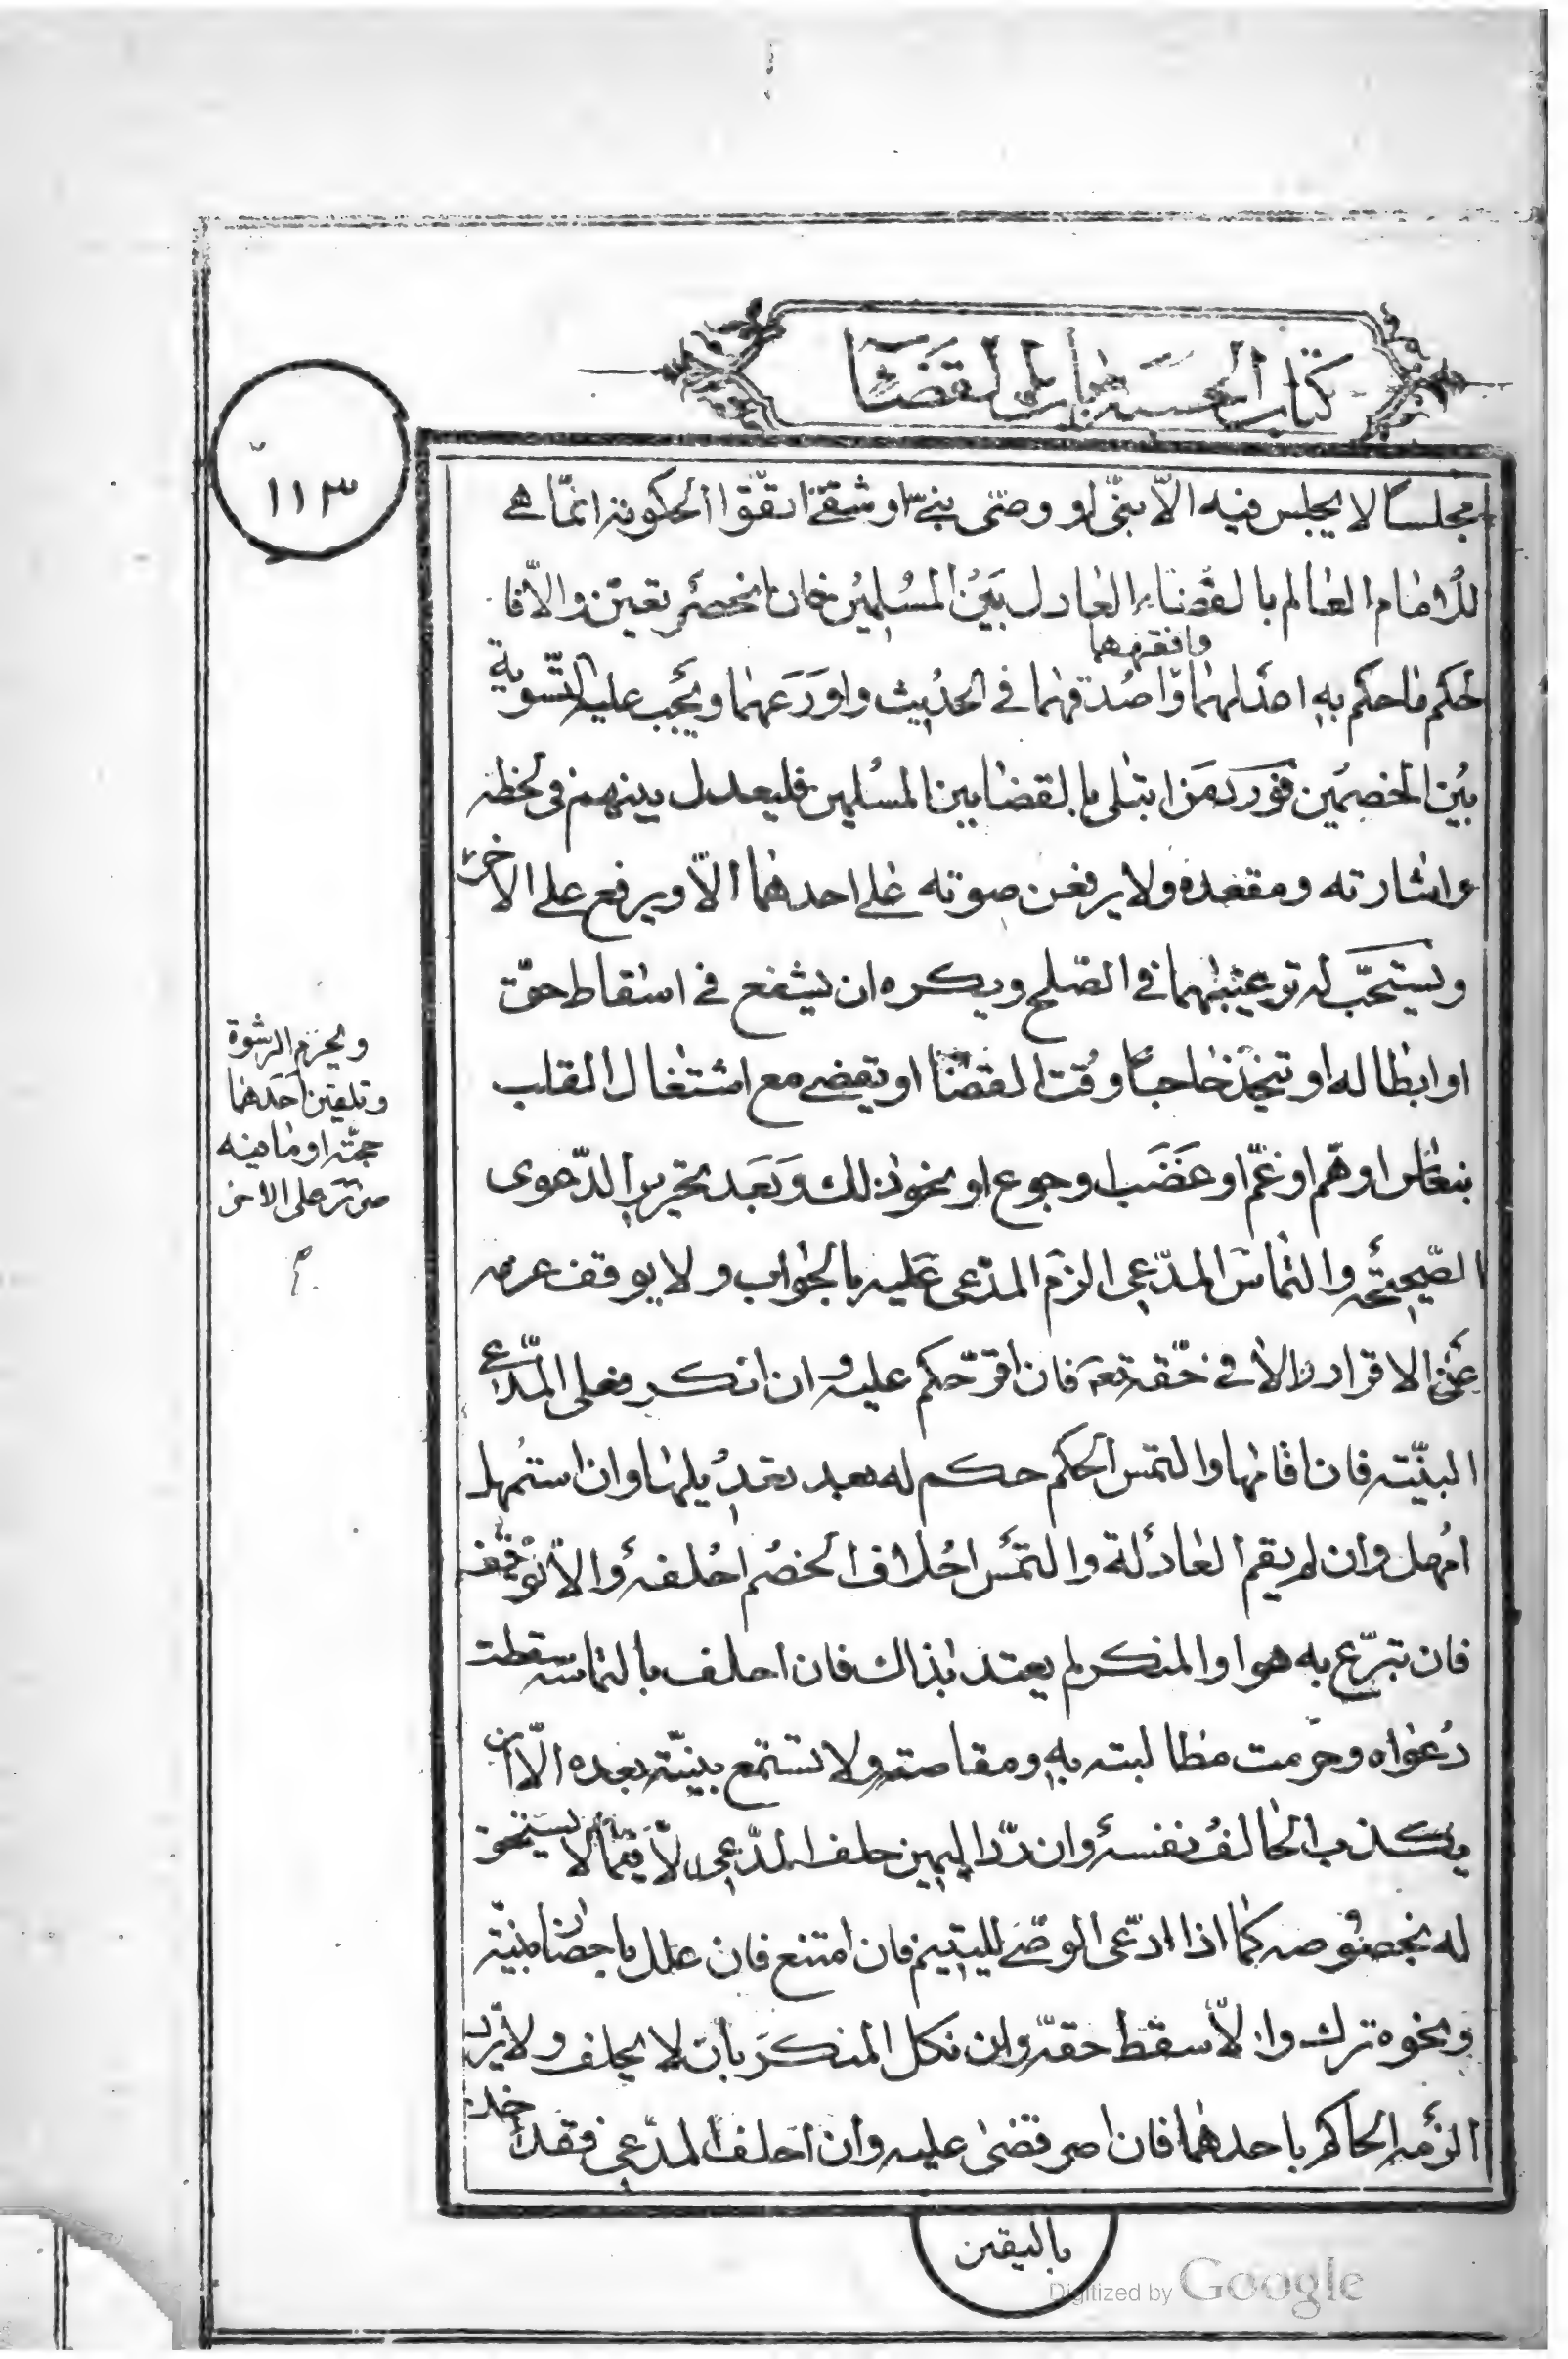 كتاب الحسبة باب القضاء
١١٣
مجلسا لا يجلس فيه الّا نبيّ او وصّى نبيّ او شقيّ اتّقوا الحكومة انمّا هي
للامام العالم بالقضاء العادل بين المسلمين فان انحصر تعيّن والّا فا
وافقههما
لحكم ما حكم به اعدلهما واصدقهما في الحديث واورعهما ويجب عليه التّسوية
بين الخصمين فورد من ابتلى بالقضا بين المسلمين فليعدل بينهم في لحظه
واشارته ومقعده ولا يرفعن صوته على احدهما الّا ويرفع على الاخر
ويستحبّ له ترغيبهما في الصّلح ويكره ان يشفع في اسقاط حقّ
او ابطاله او يتخّذ حاجبا وقت القضا او يقضي مع اشتغال القلب
بنعاس او همّ او غمّ او غضب او جوع او نحو ذلك وبعد تحرير الدّعوى
الصّحيحة والتماس المدّعي الزم المدّعى عليه بالجواب ولا يوقف عزمه
عن الاقرار الا في حقّه تعه فان اقرّ حكم عليه وان انكر فعلى المدّعي
البيّنه فان اقامها والتمس الحكم حكم له بعد تعديلها وان استمهل
امهل وان لم يقم العادلة والتمس احلاف الخصم احلفه والّا توقّف
فان تبرّع به هو او المنكر لم يعتد بذاك فان احلف بالتماسه سقطت
دعواه وحرّمت مطالبته به ومقاصته ولا تستمع بيّنته بعده الّا ان
يكذب الحالف نفسه وان ردّ اليمين حلف المدّعي الّا فيما لا يستحق
له بخصوصه كما اذا ادّعى الوصّي لليتيم فان امتنع فان علل باحضار بيّنة
ونحوه ترك والّا سقط حقّه وان نكل المنكر بان لا يحلف ولا يرد
الزمه الحاكم باحدهما فان اصر قضى عليه وان احلف المدّعي فقد اخذ
باليقين
ويحرم الرشوة
وتلقين احدهما
حجّته او ما فيه
ضرر على الاخر
Digitized by Google